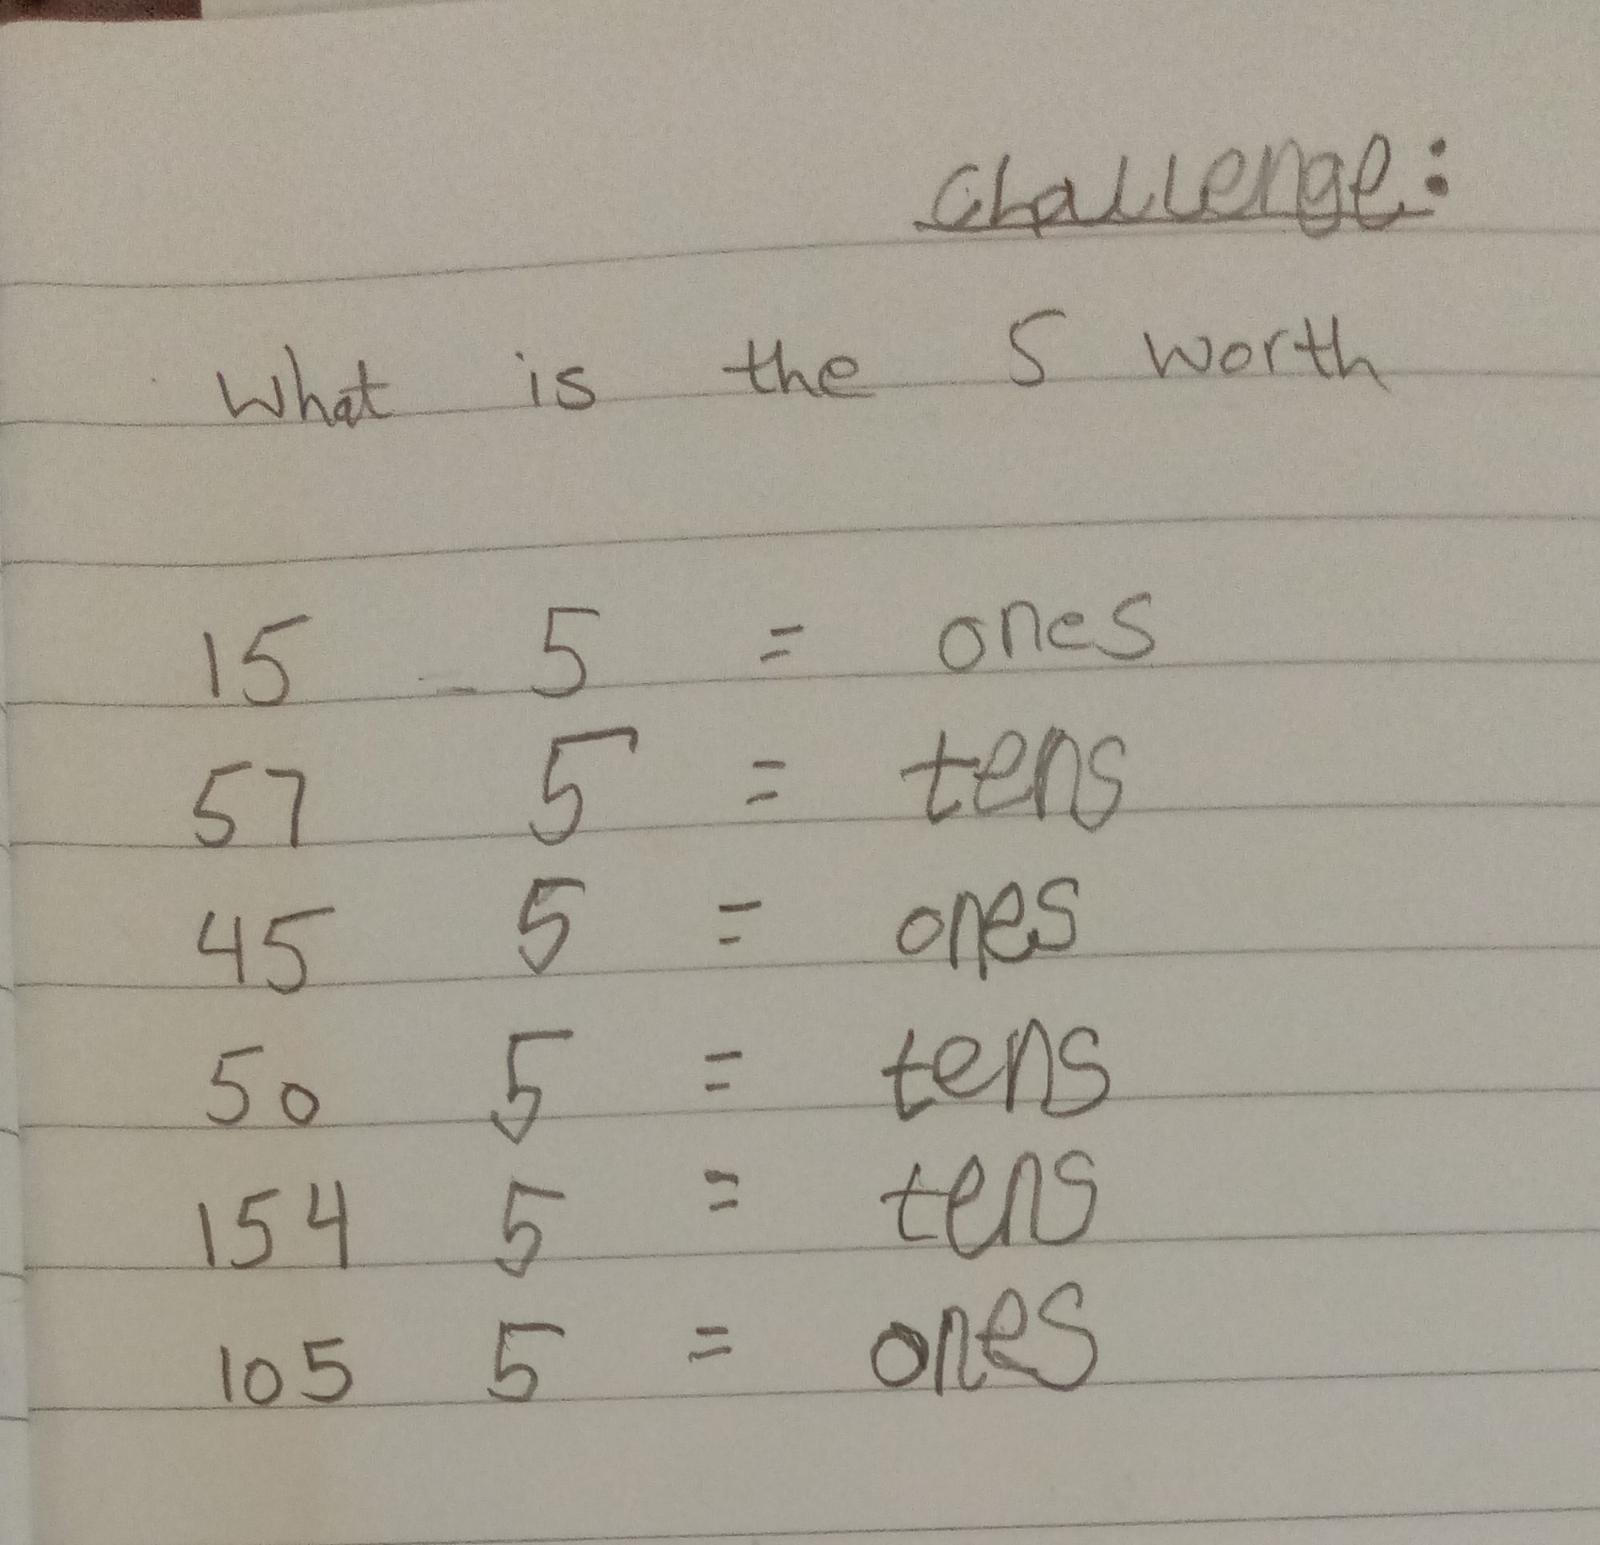 Challenge:
What is the 5 worth
15 5 = ones
57 5 = tens
45 5 = ones
50 5 = tens
154 5 = tens
105 5 = ones